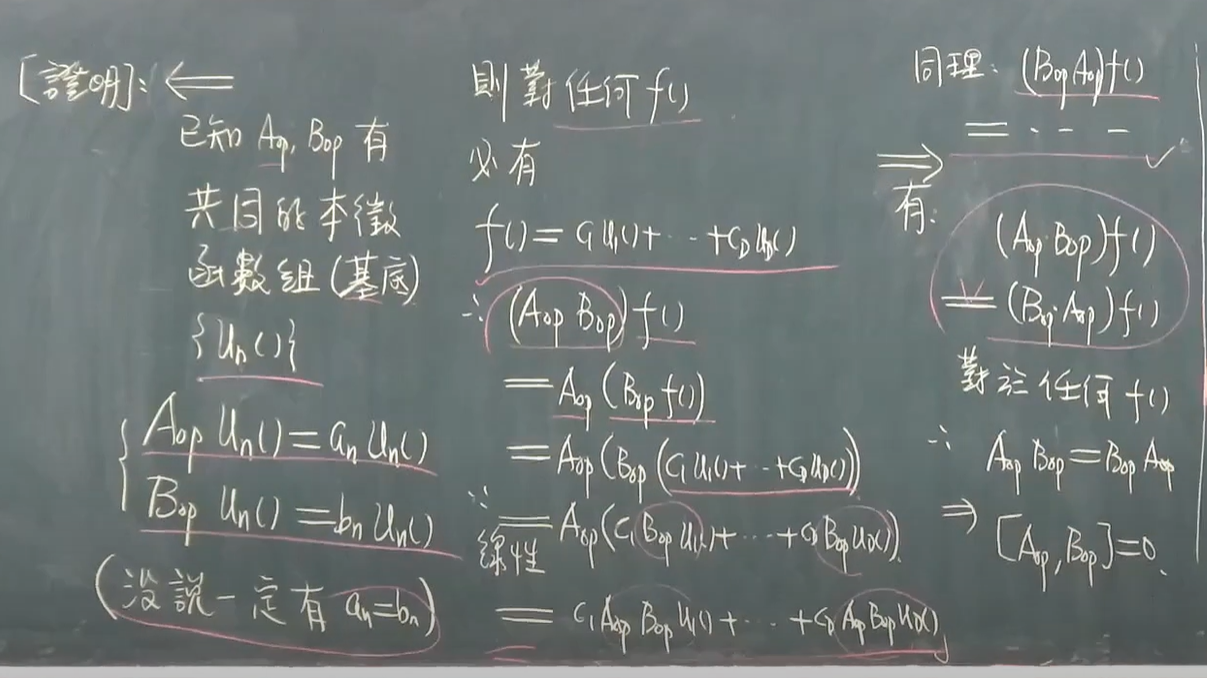 [證明]: ⇐
已知 Aop, Bop 有
共同的本徵
函數組(基底)
{Un()}
Aop Un() = an Un()
Bop Un() = bn Un()
(沒說一定有 an=bn)
則對任何 f()
必有
f() = C1U1()+ ‥ +CDUD()
∴ (Aop Bop) f()
= Aop (Bop f())
= Aop (Bop (C1U1()+ ‥ +CDUD()))
∵線性 = Aop(C1 Bop U1()+ ‥ +CD Bop UD())
= C1 Aop Bop U1()+ ‥ +CD Aop Bop UD()
同理: (Bop Aop)f()
= ‥ - -
⇒ 有:
(Aop·Bop)f()
= (Bop·Aop)f()
對於任何 f()
∴ Aop Bop = Bop Aop
⇒ [Aop, Bop]=0.